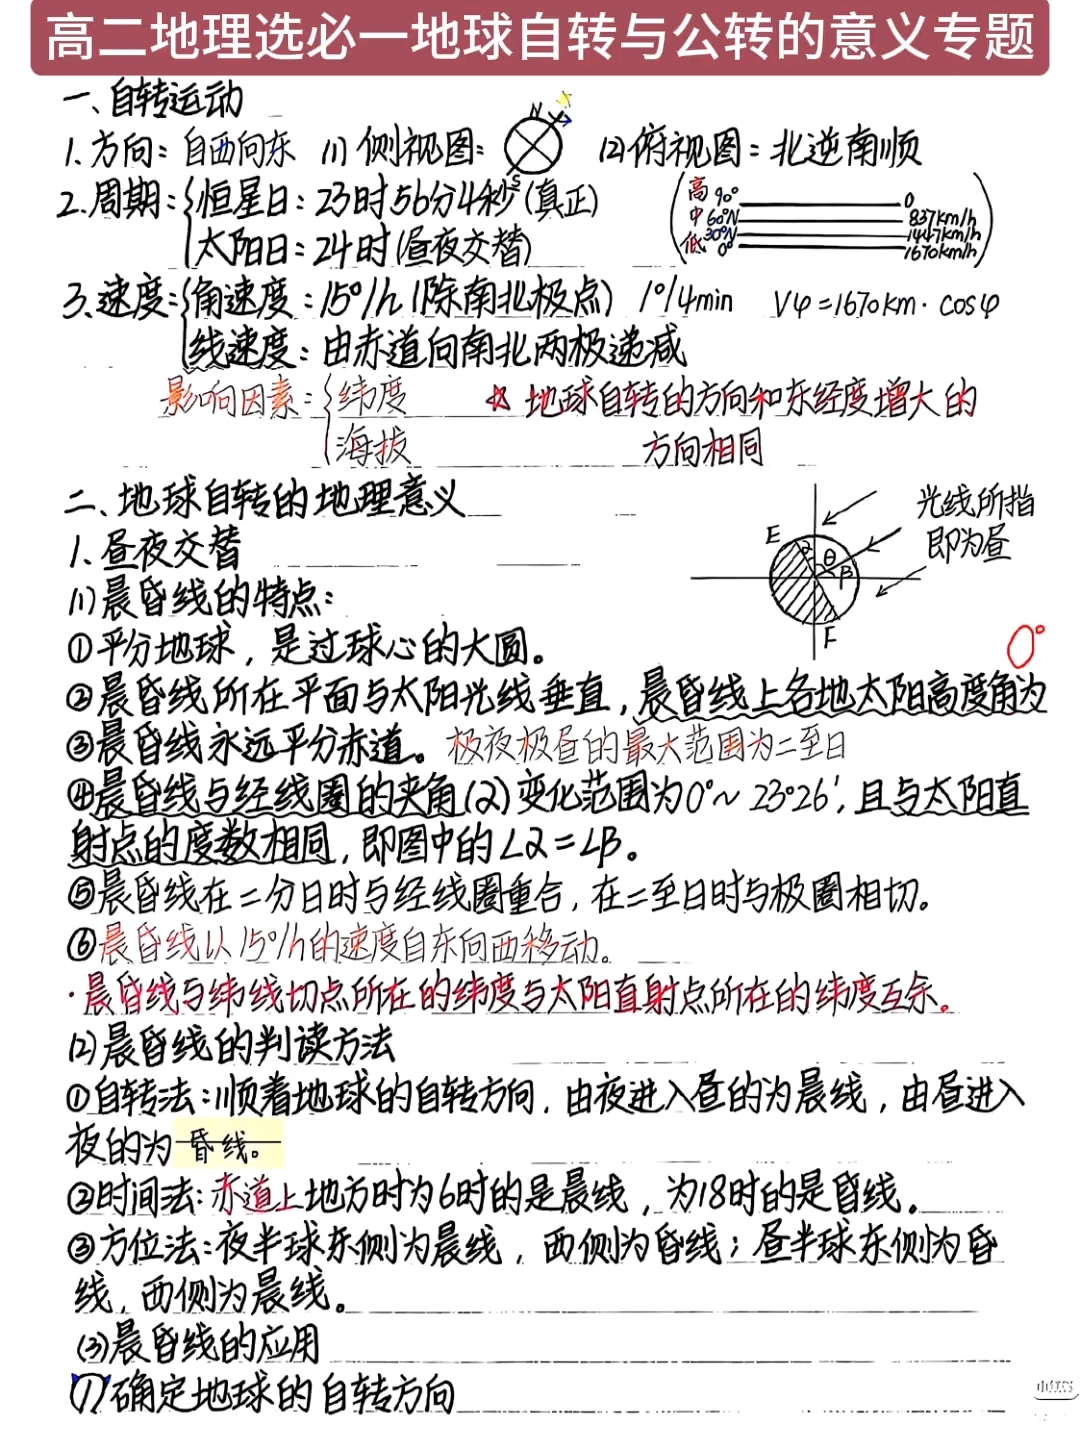 高二地理选必一地球自转与公转的意义专题
一、自转运动
1.方向：自西向东 (1)侧视图： N S (2)俯视图：北逆南顺
2.周期：恒星日：23时56分4秒(真正)
太阳日：24时(昼夜交替)
高 90° 0
中 60°N 837km/h
低 30°N 1447km/h
0° 1670km/h
3.速度：角速度：15°/h(除南北极点) 1°/4min Vφ=1670km·cosφ
线速度：由赤道向南北两极递减
影响因素：纬度 ☆ 地球自转的方向和东经度增大的
海拔 方向相同
二、地球自转的地理意义
1.昼夜交替
光线所指
即为昼
E α θ β F
(1)晨昏线的特点：
①平分地球，是过球心的大圆。
0°
②晨昏线所在平面与太阳光线垂直，晨昏线上各地太阳高度角为
③晨昏线永远平分赤道。极夜极昼的最大范围为二至日
④晨昏线与经线圈的夹角(α)变化范围为0°~23°26′，且与太阳直
射点的度数相同，即图中的∠α=∠β。
⑤晨昏线在二分日时与经线圈重合，在二至日时与极圈相切。
⑥晨昏线以15°/h的速度自东向西移动。
·晨昏线与纬线切点所在的纬度与太阳直射点所在的纬度互余。
(2)晨昏线的判读方法
①自转法：顺着地球的自转方向，由夜进入昼的为晨线，由昼进入
夜的为昏线。
②时间法：赤道上地方时为6时的是晨线，为18时的是昏线。
③方位法：夜半球东侧为晨线，西侧为昏线；昼半球东侧为昏
线，西侧为晨线。
(3)晨昏线的应用
①确定地球的自转方向
小红书